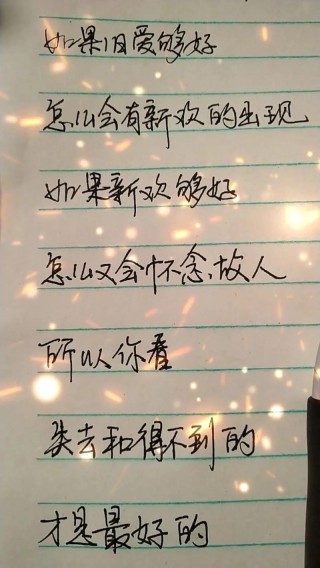 如果旧爱够好
怎么会有新欢的出现
如果新欢够好
怎么又会怀念故人
所以你看
失去和得不到的
才是最好的